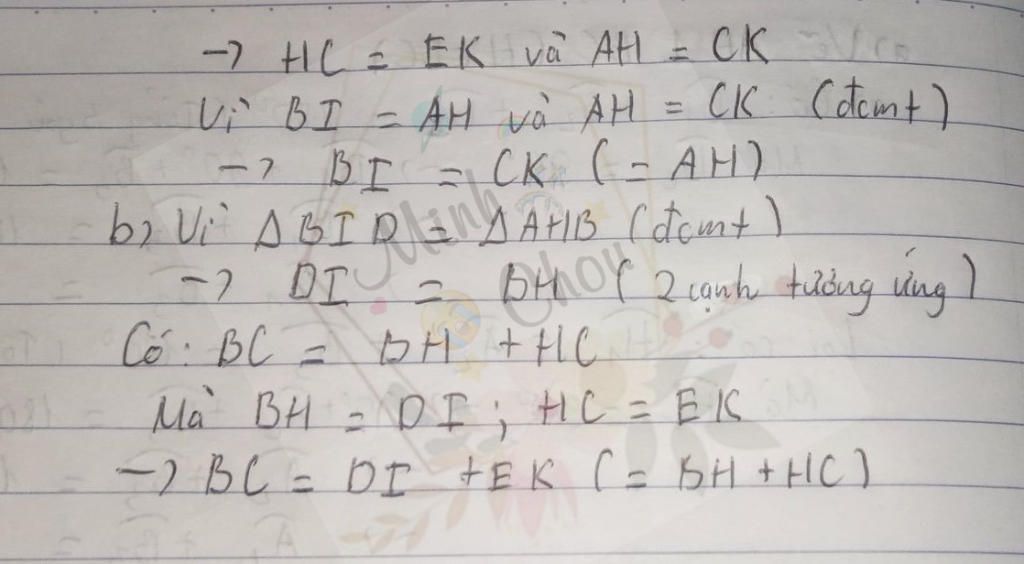 → HC = EK và AH = CK
Vì BI = AH và AH = CK (đcmt)
→ BI = CK (= AH)
b) Vì Δ BID = Δ AHB (đcmt)
→ DI = BH (2 cạnh tương ứng)
Có: BC = BH + HC
Mà BH = DI ; HC = EK
→ BC = DI + EK (= BH + HC)
Minh
Chou